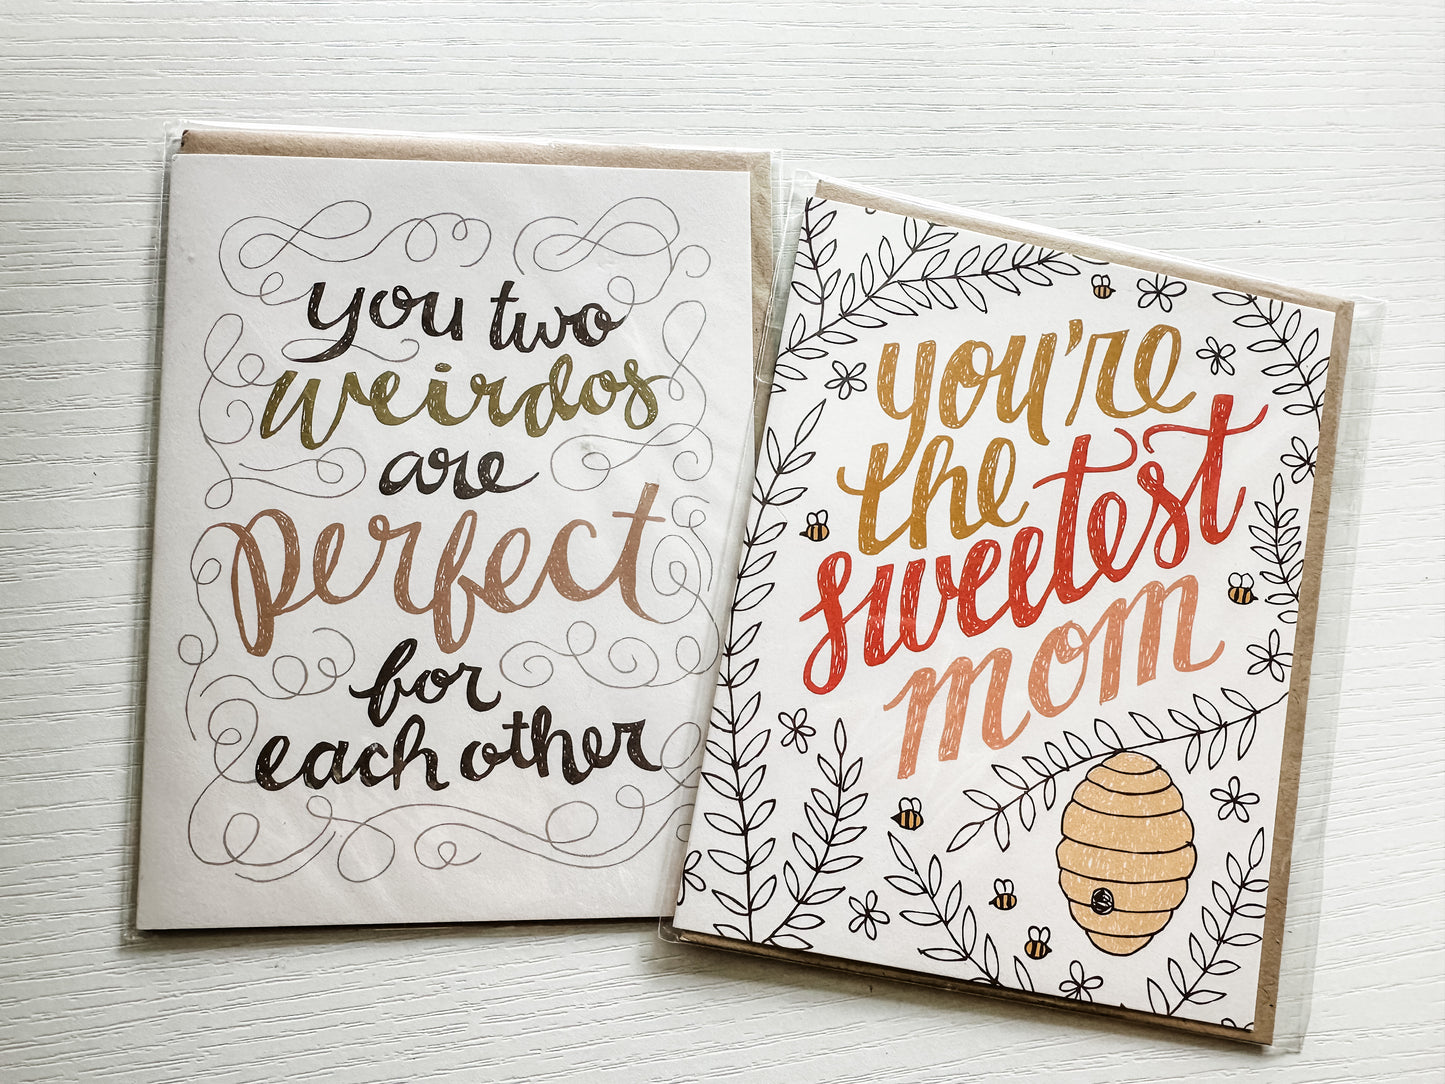 you two
weirdos
are
perfect
for
each other
you're
the
sweetest
mom